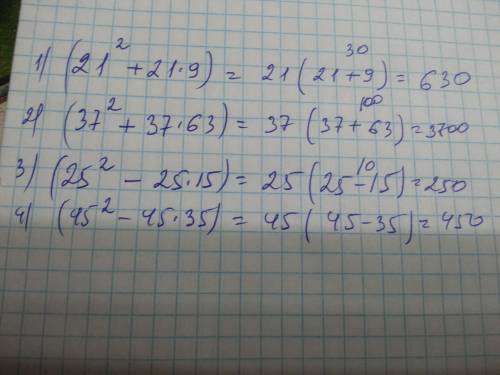 1) (21² + 21·9) = 21 (21+9) = 630
30
2) (37² + 37·63) = 37 (37+63) = 3700
100
3) (25² - 25·15) = 25 (25-15) = 250
10
4) (45² - 45·35) = 45 (45-35) = 450